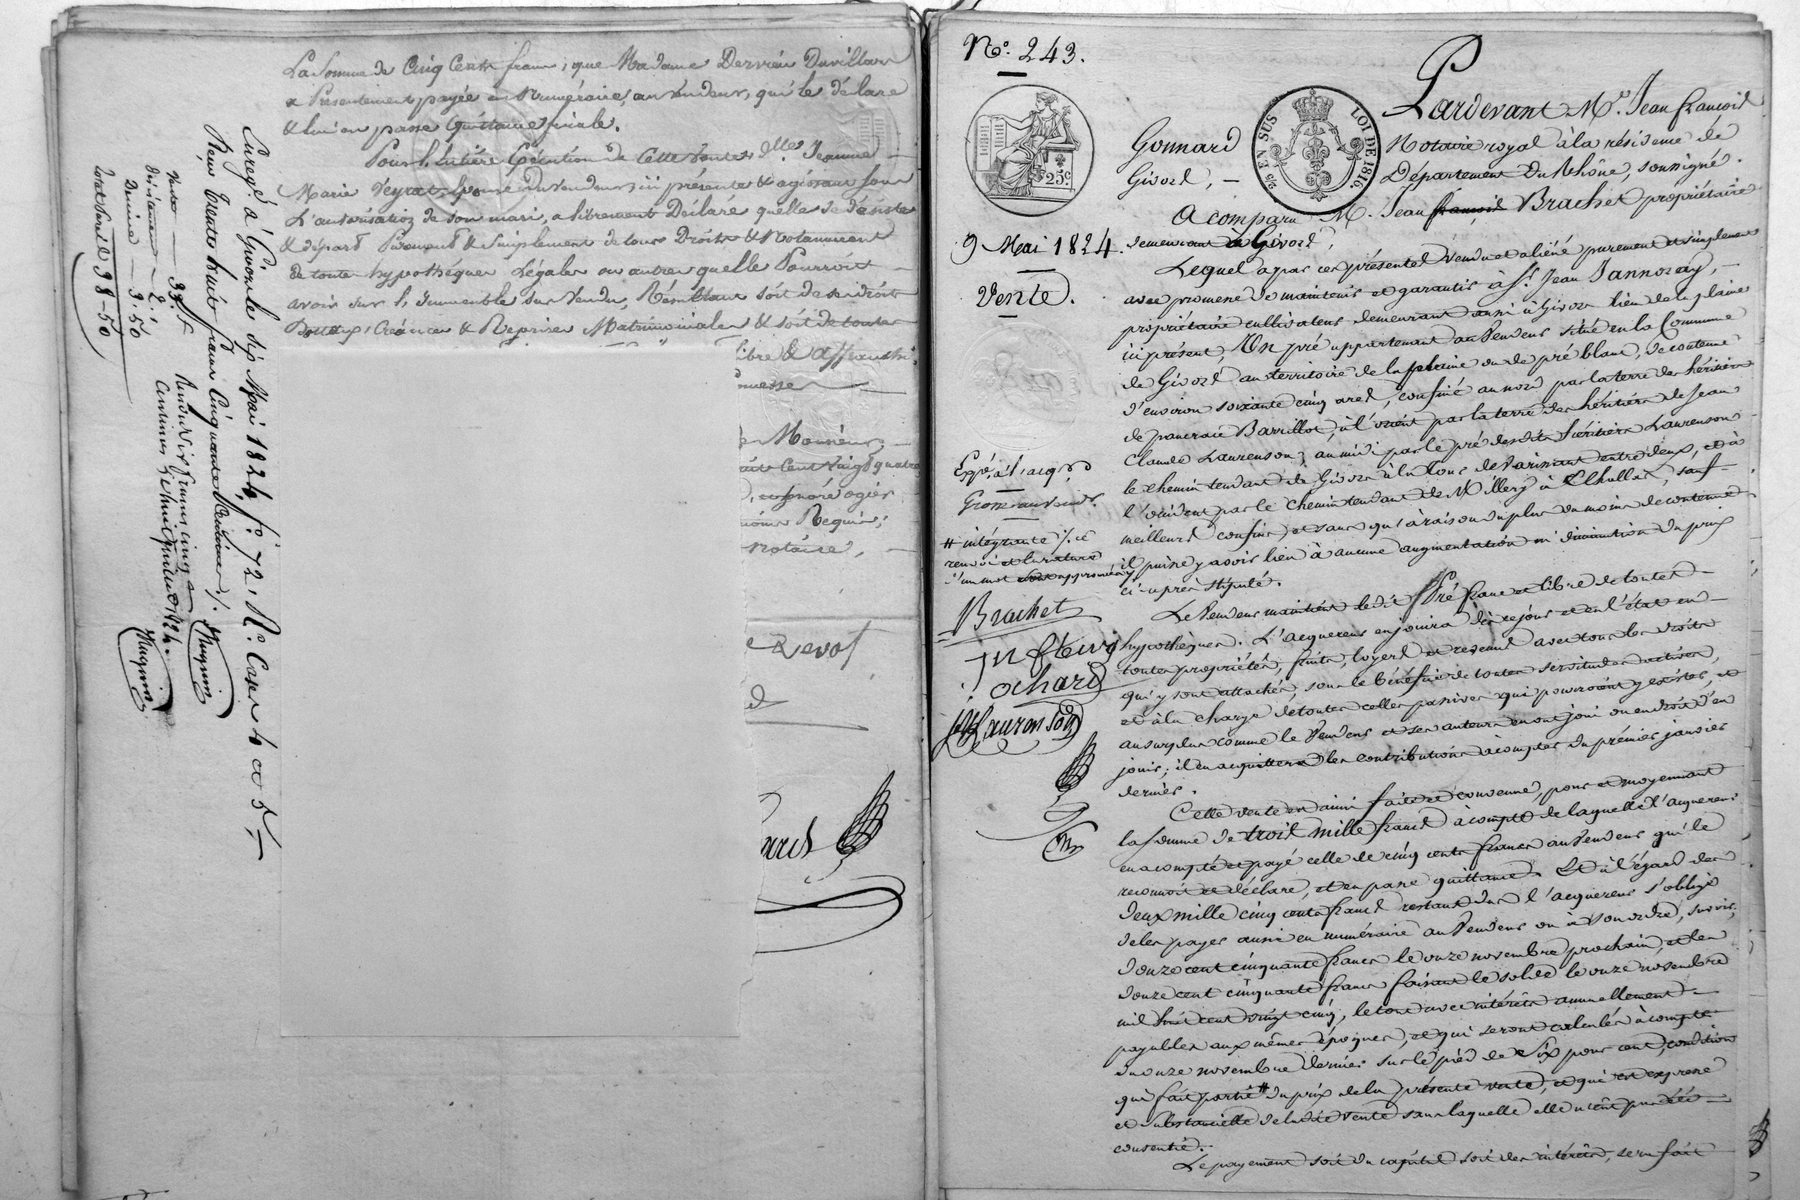 La somme de Cinq Cents francs, que Madame Dervieu Duvillars
a Présentement payée en Numéraire, au vendeur, qui le déclare
& lui en passe Quittance finale.
Pour l'Entière Exécution de Cette Vente, delle Jeanne
Marie Veyrat, Epouse du Vendeur, ici présente & agissant sous
L'autorisation de son mari, a librement Déclaré quelle se désiste
& départ Purement & Simplement de tous Droits & Notamment
de toutes hypothéques Légales ou autres quelle Pourroit
avoir sur l'immeuble sus vendu, Résultant soit de ses droits
Dotaux, Créances & Reprises Matrimoniales & soit de toutes
libre & affranchi
Monsieur
cent vingt quatre
notaire,
Revol
Enregé. à Givors le dix Mai 1824, fo. 72, Ro. Cases 4 et 5,
Reçu trente huit francs Cinquante Centimes
Huguin
Vente — 35
Décime — 3.50
Total 38-50
Huguin
No. 243.
25c
EN SUS
LOI DE 1816
Pardevant Me. Jean françois
Gonnard Notaire royal à la résidence de
Givors, — Département du Rhône, soussigné.
A comparu, M. Jean françois Brachet propriétaire
9 Mai 1824. demeurant à Givors,
Vente.
Lequel a par ces présentes vendu et aliéné purement et simplement
avec promesse de maintenir et garantir à Sr. Jean Jannoray,
propriétaire cultivateur demeurant aussi à Givors lieu de la plaine
ici présent, Un pré appartenant au Vendeur situé en la Commune
de Givors au territoire de la plaine ou de pré blanc, de contenue
d'environ soixante cinq ares, confiné au nord par la terre des héritiers
de pancrace Barrillot, à l'orient par la terre des héritiers de Jean
Claude Laurenson; au midi par le pré desdits héritiers Laurenson
le chemin tendant de Givors à la Tour de Varissant entre deux, et à
l'occident par le chemin tendant de Millery à Chullas, sauf
meilleurs confins et sans qu'à raison du plus ou moins de contenue
il puisse y avoir lieu à aucune augmentation ni diminution du prix
ci-après stipulé.
Expé. à l'acqr.
Grosse au vendr.
# intégrante /. ce
renvoi et la rature
d'un mot
Brachet
Jn fleury
Jochard
Laurenson
Le Vendeur maintient ledit Pré franc et libre de toutes
hypothèques. L'acquereur en jouira dès ce jour et en l'état en
toutes propriétés, fruits, loyers et revenus avec tous les droits
qui y sont attachés, sous le bénéfice de toutes servitudes actives,
et à la charge de toutes celles passives qui pourroient y exister, et
au surplus comme le Vendeur et ses auteurs en ont joui ou eu droit d'en
jouir; il en acquittera les contributions à compter du premier janvier
dernier.
Cette vente est ainsi faite et convenue, pour et moyennant
la somme de trois mille francs à compte de laquelle l'acquereur
en a compté et payé celle de cinq cents francs au Vendeur qui le
reconnoit et déclare, et en passe quittance. Et à l'égard des
deux mille cinq cents francs restant dus l'acquereur s'oblige
de les payer aussi en numéraire au Vendeur ou à son ordre, savoir;
douze cent cinquante francs le onze novembre prochain, et les
douze cent cinquante francs faisant le solde le onze novembre
mil huit cent vingt cinq, le tout avec intérêts annuellement
payables aux mêmes époques, et qui seront calculés à compter
du onze novembre dernier sur le pied de six pour cent, condition
qui fait partie # du prix de la présente vente, et qui est expresse
et substancielle de ladite vente sans laquelle elle n'eût pas été
consentie.
Le payement soit du capital soit des intérêts, sera fait